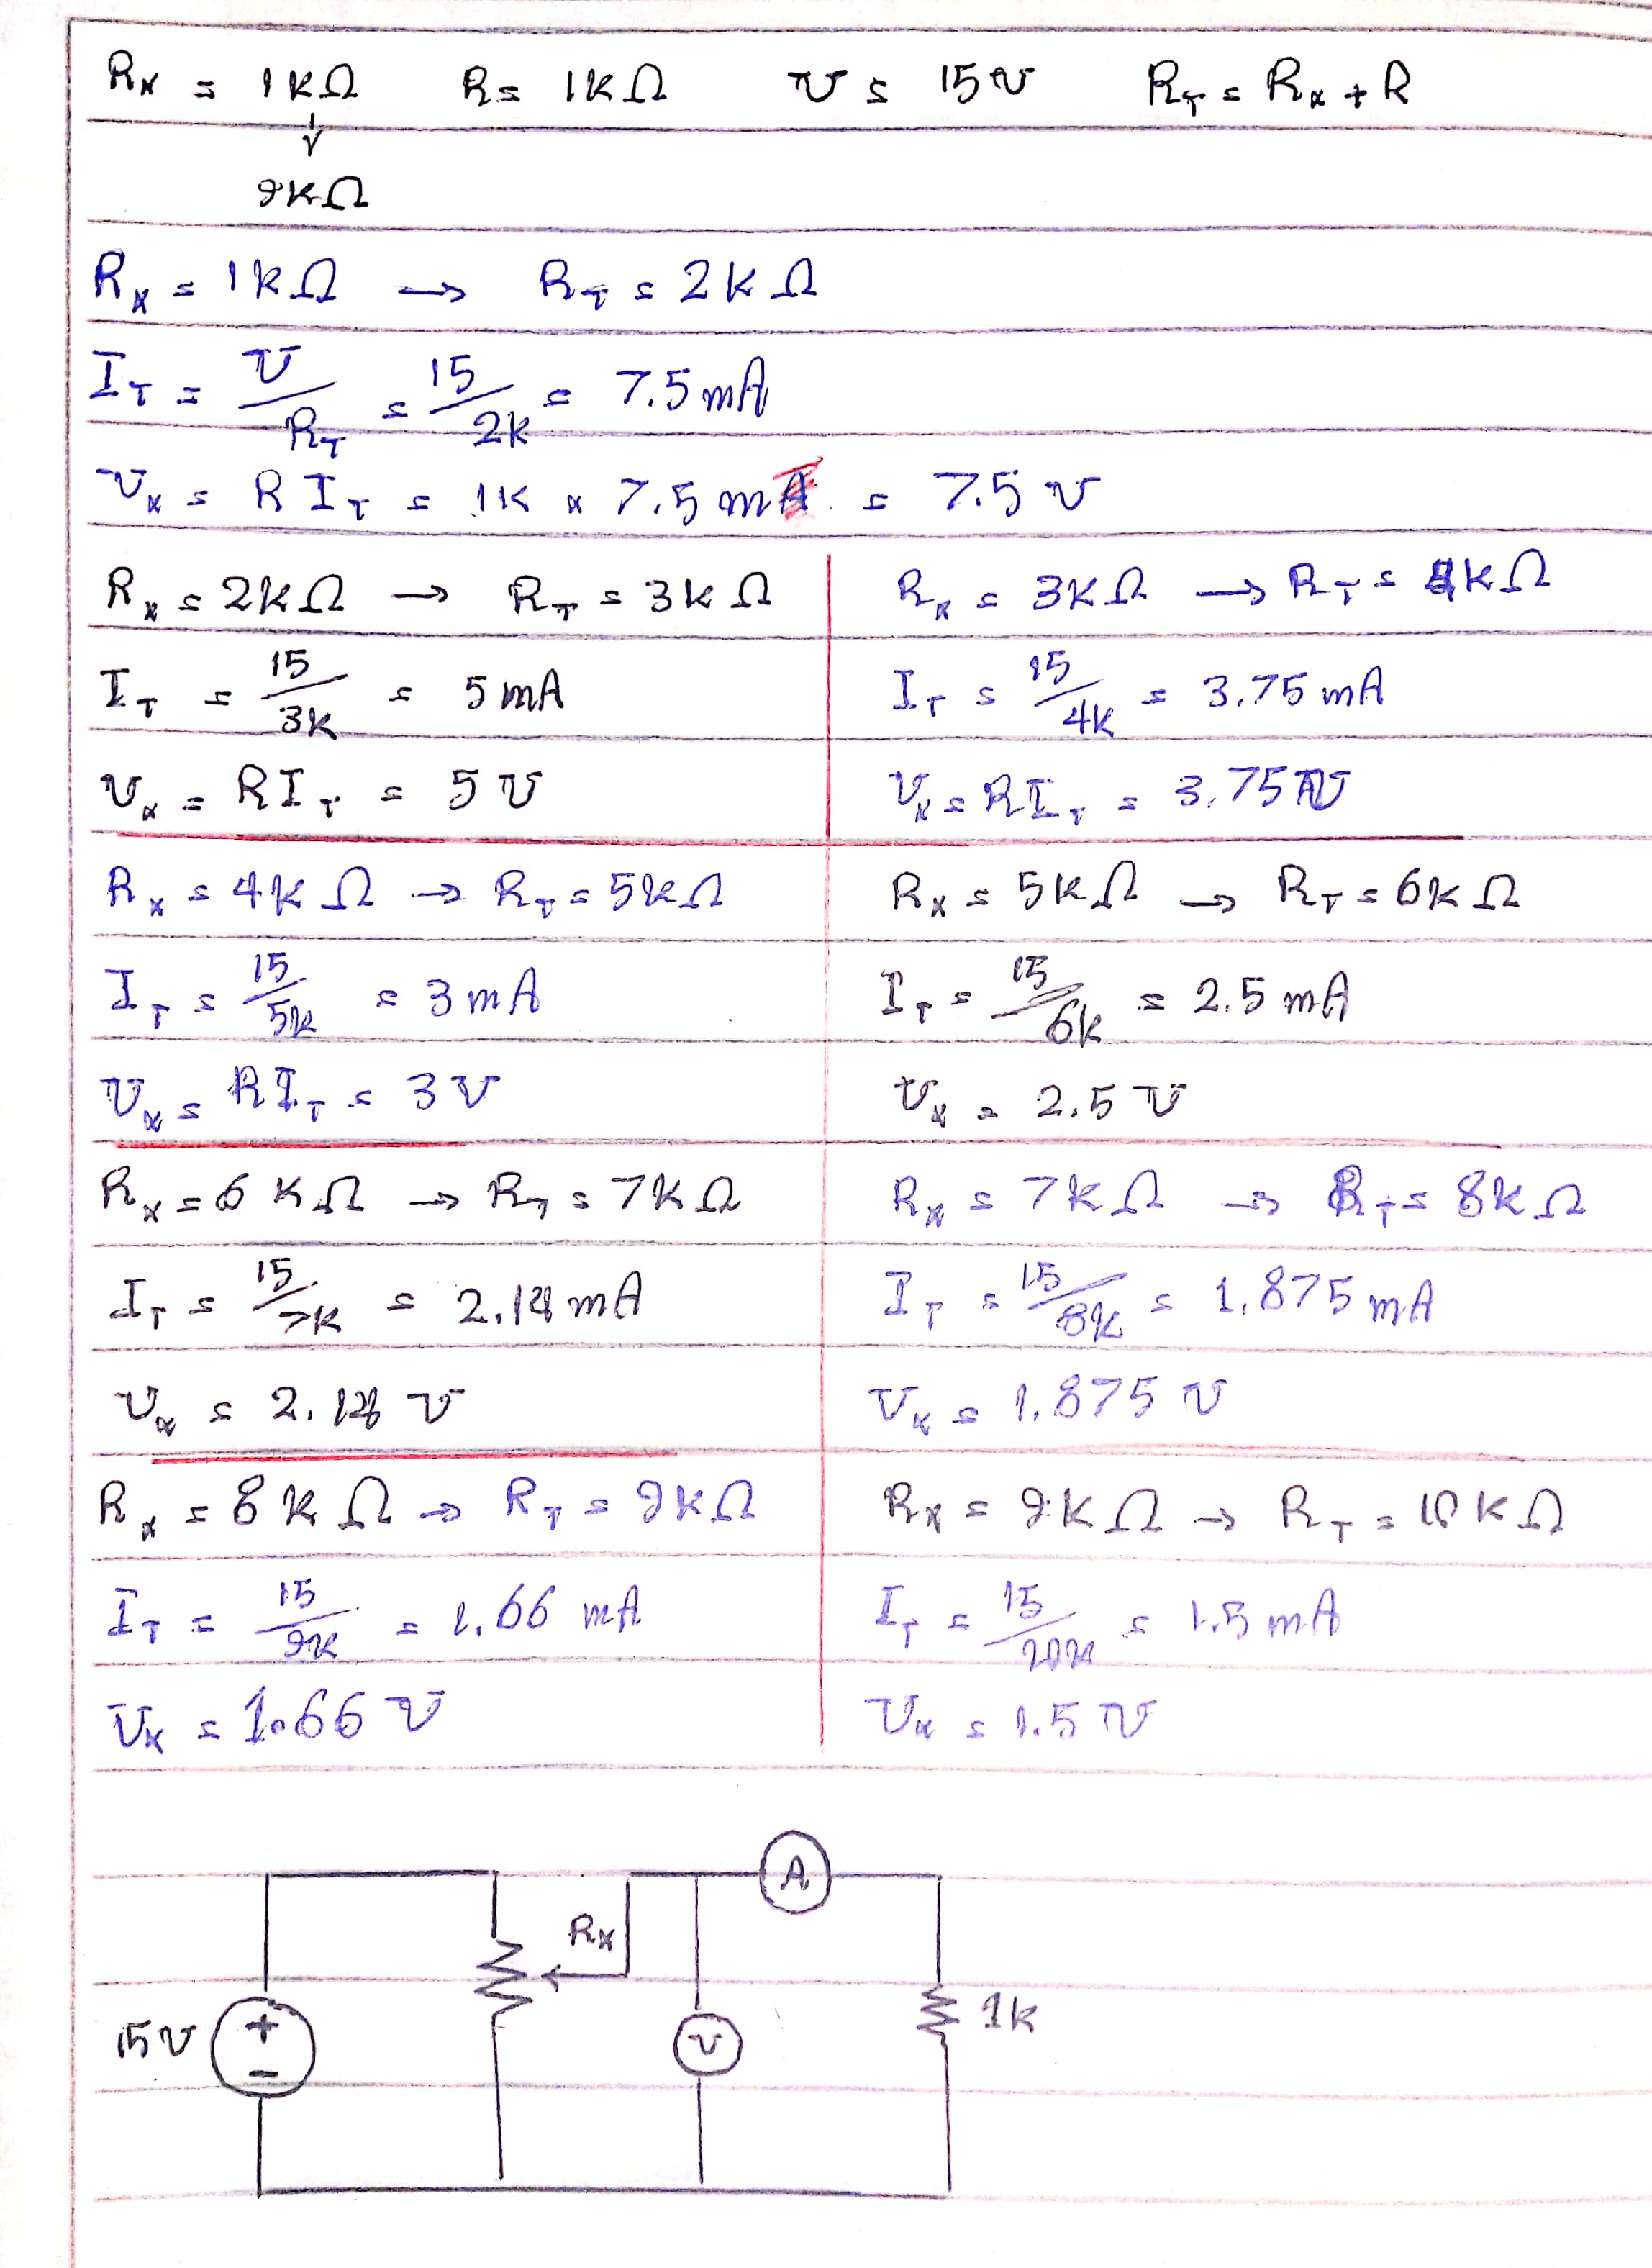 Rx = 1kΩ R = 1kΩ V = 15V RT = Rx + R
↓
9kΩ
Rx = 1kΩ → RT = 2kΩ
IT = V/RT = 15/2k = 7.5mA
Vx = R IT = 1K × 7.5m = 7.5 V
Rx = 2kΩ → RT = 3kΩ
IT = 15/3k = 5mA
Vx = RIT = 5V
Rx = 3kΩ → RT = 4kΩ
IT = 15/4k = 3.75mA
Vx = RIT = 3.75V
Rx = 4kΩ → RT = 5kΩ
IT = 15/5k = 3mA
Vx = RIT = 3V
Rx = 5kΩ → RT = 6kΩ
IT = 15/6k = 2.5mA
Vx = 2.5V
Rx = 6kΩ → RT = 7kΩ
IT = 15/7k = 2.14mA
Vx = V
Rx = 7kΩ → RT = 8kΩ
IT = 15/8k = 1.875mA
Vx = 1.875V
Rx = 8kΩ → RT = 9kΩ
IT = 15/9k = 1.66mA
Vx = 1.66V
Rx = 9kΩ → RT = 10kΩ
IT = 15/10k = 1.5mA
Vx = 1.5V
A
Rx
15V + − V 1k